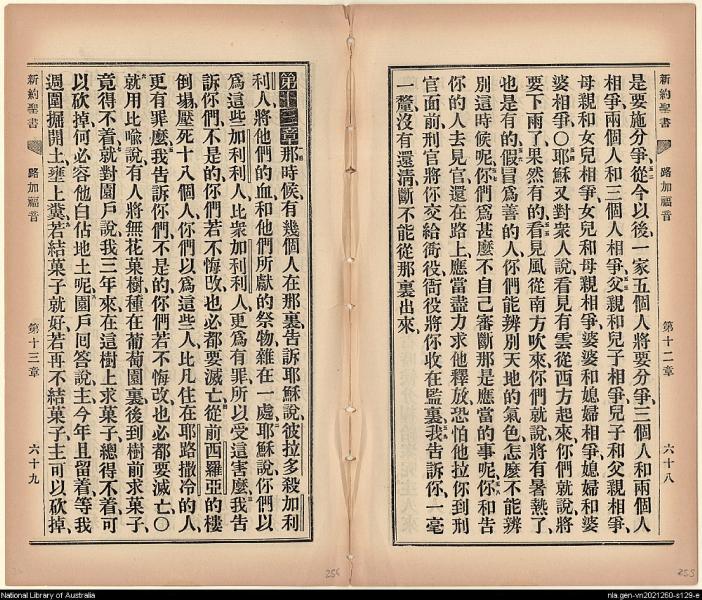 新約聖書 路加福音 第十二章 六十八
是要施分爭、從今以後、一家五個人將要分爭、三個人和兩個人
相爭、兩個人和三個人相爭、父親和兒子相爭、兒子和父親相爭、
母親和女兒相爭、女兒和母親相爭、婆婆和媳婦相爭、媳婦和婆
婆相爭、〇耶穌又對衆人說、看見有雲從西方起來、你們就說、將
要下雨了、果然有的、看見風從南方吹來、你們就說、將有暑熱了、
也是有的、假冒爲善的人、你們能辨別天地的氣色、怎麼不能辨
別這時候呢、你們爲甚麼不自己審斷那是應當的事呢、你和告
你的人去見官、還在路上、應當盡力求他釋放、恐怕他拉你到刑
官面前、刑官將你交給衙役、衙役將你收在監裏、我告訴你、一毫
一釐沒有還清、斷不能從那裏出來、
第十三章 那時候、有幾個人在那裏、告訴耶穌說、彼拉多殺加利
利人、將他們的血、和他們所獻的祭物、雜在一處、耶穌說、你們以
爲這些加利利人、比衆加利利人、更爲有罪、所以受這害麼、我告
訴你們、不是的、你們若不悔改、也必都要滅亡、從前西羅亞的樓
倒塌、壓死十八個人、你們以爲這些人、比凡住在耶路撒冷的人、
更有罪麼、我告訴你們、不是的、你們若不悔改、也必都要滅亡、〇
就用比喻說、有人將無花菓樹、種在葡萄園裏、後到樹前求菓子、
竟得不着、就對園戶說、我三年來、在這樹上求菓子、總得不着、可
以砍掉、何必容他白佔地土呢、園戶回答說、主、今年且留着、等我
週圍掘開土、壅上糞、若結菓子就好、若再不結菓子、主可以砍掉、
新約聖書 路加福音 第十三章 六十九
256
255
National Library of Australia
nla.gen-vn2021260-s129-e